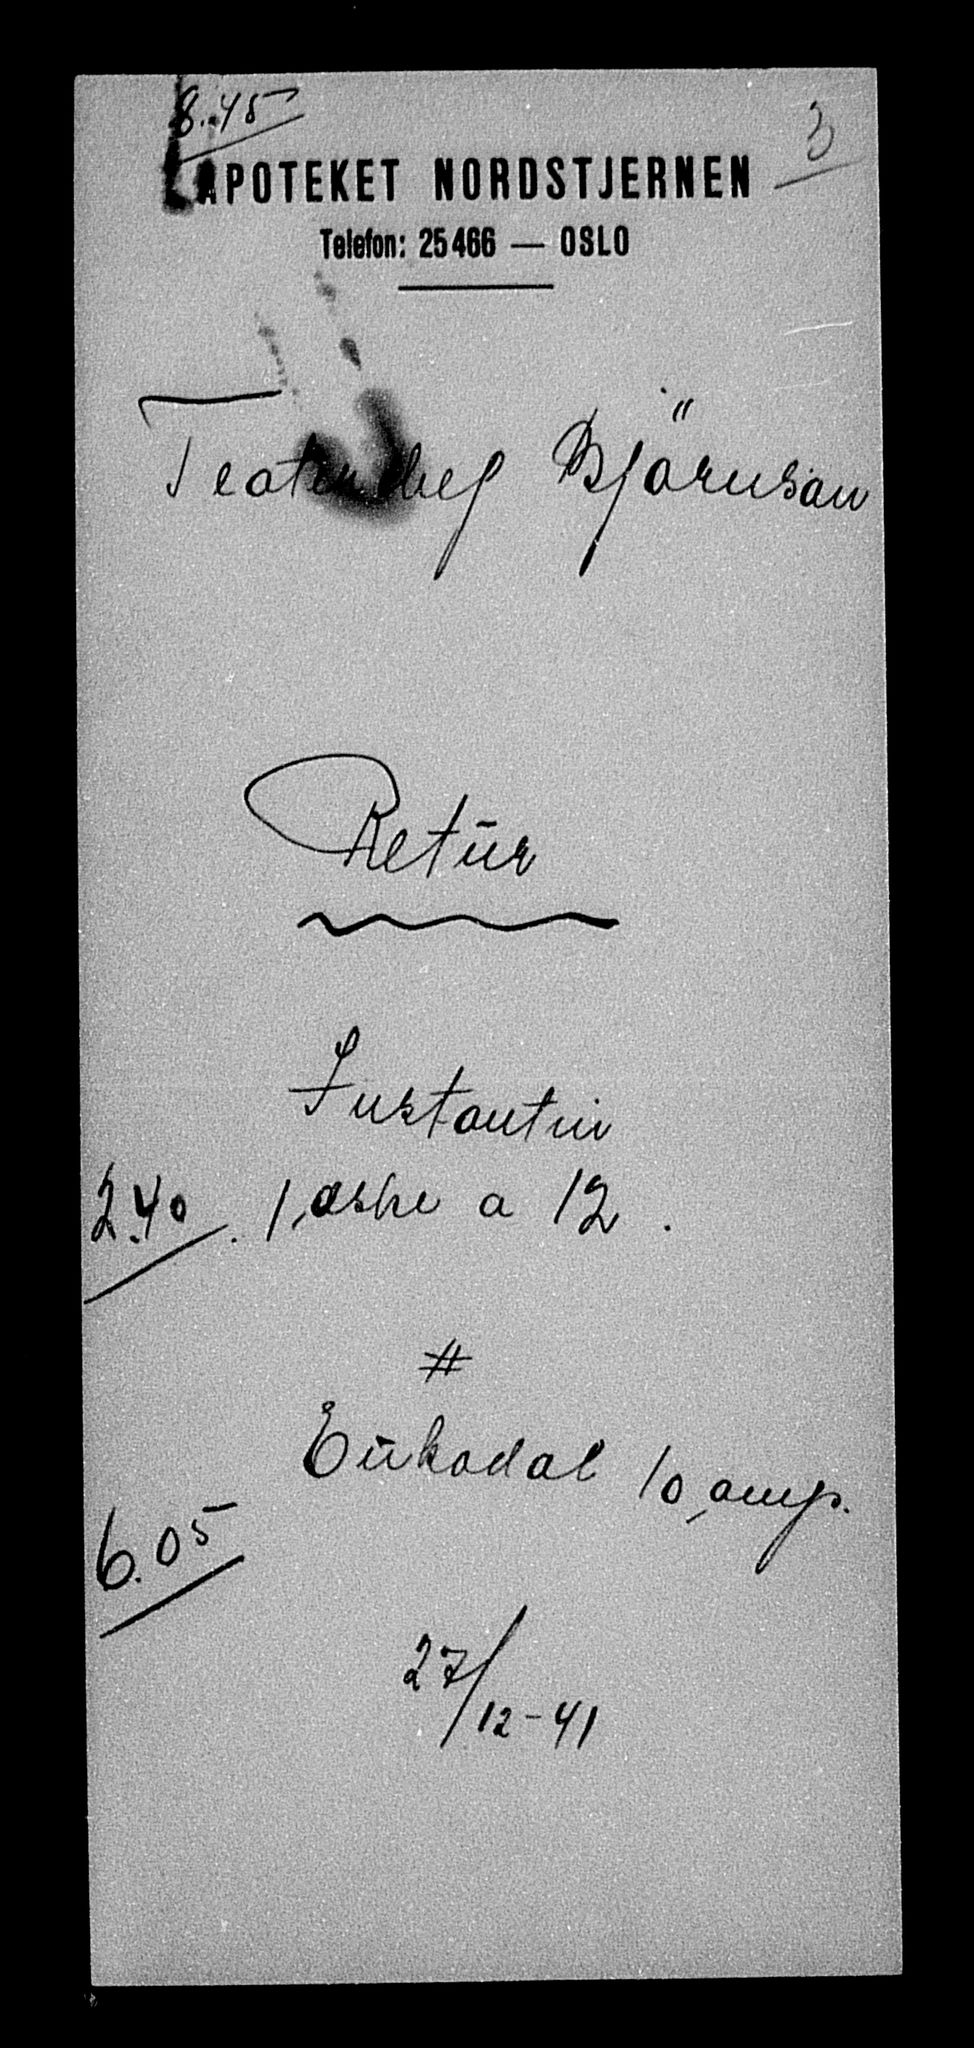 8.45
3
APOTEKET NORDSTJERNEN
Telefon: 25466 — OSLO
Teatersjef Björnson
Retŭr
Instantin
2.40. 1 æske a 12.
#
Eŭkodal 10 amp.
6.05
27/12-41